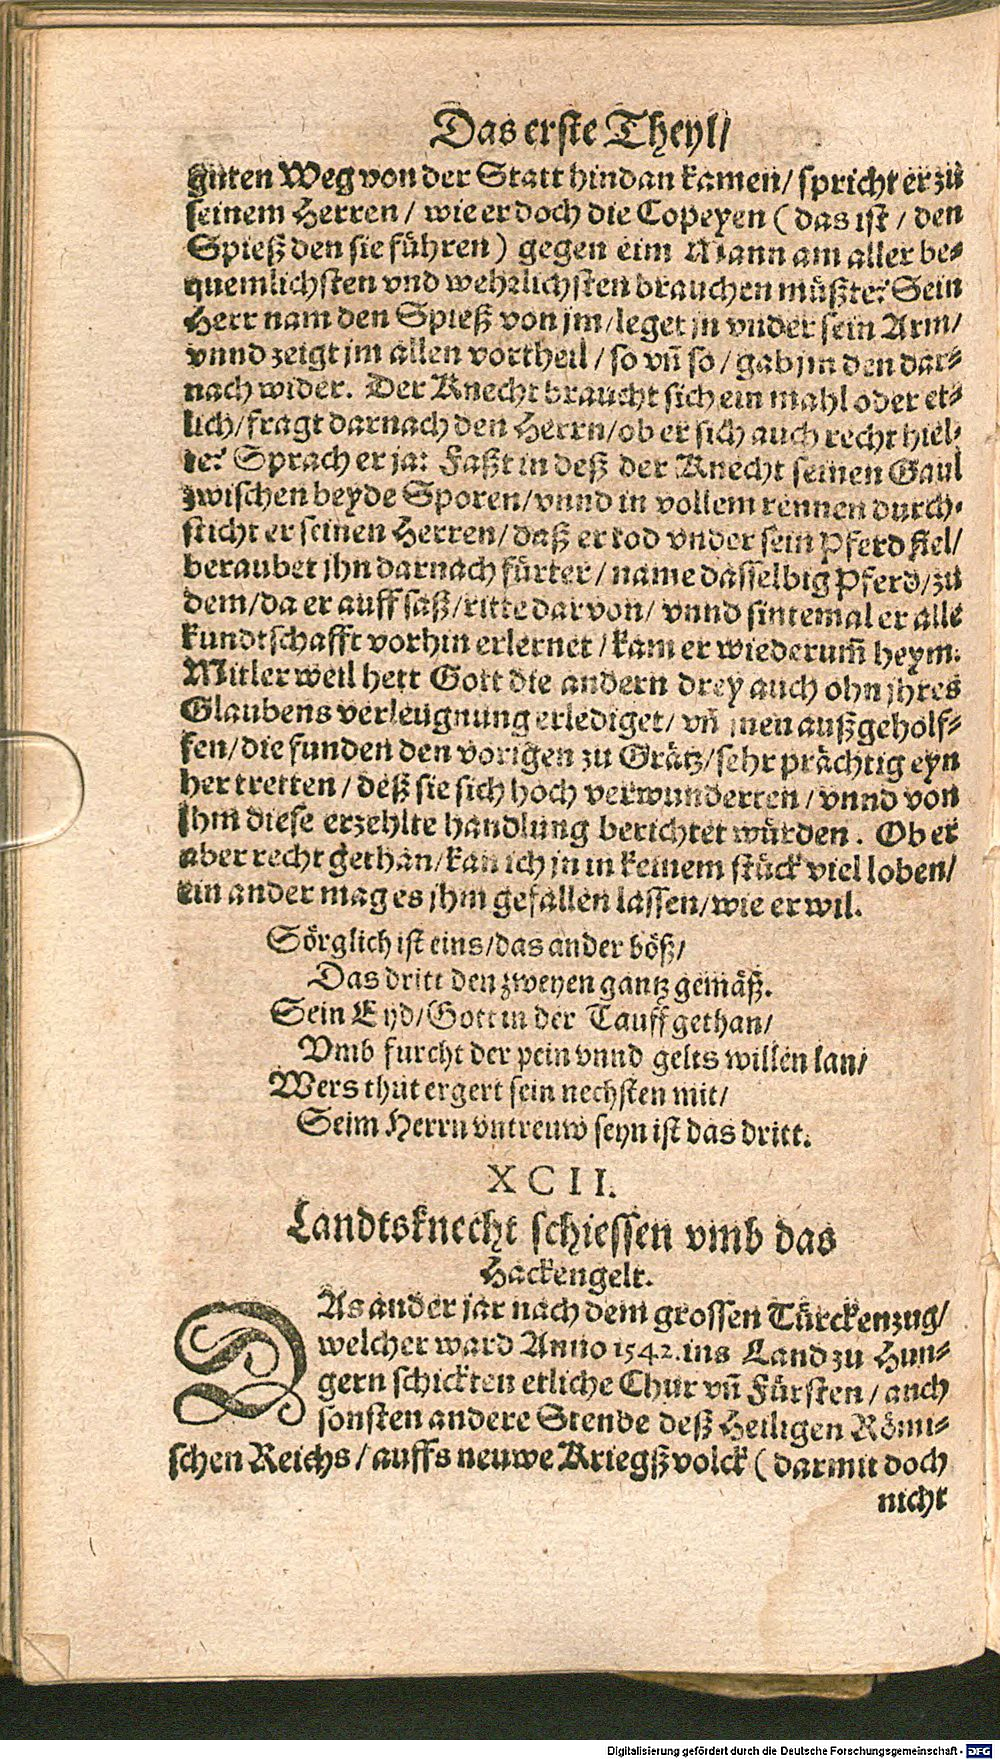 Das erste Theyl/
guten Weg von der Statt hindan kamen/ spricht er zů
seinem Herren / wie er doch die Copeyen ( das ist / den
Spieß den sie führen ) gegen eim Mann am aller be-
quemlichsten vnd wehrlichsten brauchen müßte? Sein
Herr nam den Spieß von jm/leget jn vnder sein Arm/
vnnd zeigt jm allen vortheil / so vñ so / gab jm den dar-
nach wider. Der Knecht braucht sich ein mahl oder et-
lich/fragt darnach den Herrn/ob er sich auch recht hiel-
te? Sprach er ja: Faßt in deß der Knecht seinen Gaul
zwischen beyde Sporen/vnnd in vollem rennen durch-
sticht er seinen Herren/daß er tod vnder sein Pferd fiel/
beraubet jhn darnach fürter / name dasselbig Pferd/zů
dem/da er auff saß/ritte darvon/ vnnd sintemal er alle
kundtschafft vorhin erlernet / kam er wiederum̃ heym.
Mitler weil hett Gott die andern drey auch ohn jhres
Glaubens verleugnung erlediget/ vñ jnen außgeholf-
fen/die funden den vorigen zu Grätz/sehr prächtig eyn
her tretten / deß sie sich hoch verwunderten / vnnd von
jhm diese erzehlte handlung berichtet würden . Ob er
aber recht gethan/kan ich jn in keinem stück viel loben/
ein ander mag es jhm gefallen lassen/wie er wil.
Sörglich ist eins/das ander böß/
Das dritt den zweyen gantz gemäß.
Sein Eyd/Gott in der Tauff gethan/
Vmb furcht der pein vnnd gelts willen lan/
Wers thůt ergert sein nechsten mit/
Seim Herrn vntreuw seyn ist das dritt.
XCII.
Landtsknecht schiessen vmb das
Hackengelt.
DAs ander jar nach dem grossen Türckenzug/
welcher ward Anno 1542. ins Land zu Hun-
gern schickten etliche Chur vñ Fürsten / auch
sonsten andere Stende deß Heiligen Römi-
schen Reichs / auffs neuwe Kriegßvolck ( darmit doch
nicht
Digitalisierung gefördert durch die Deutsche Forschungsgemeinschaft - DFG